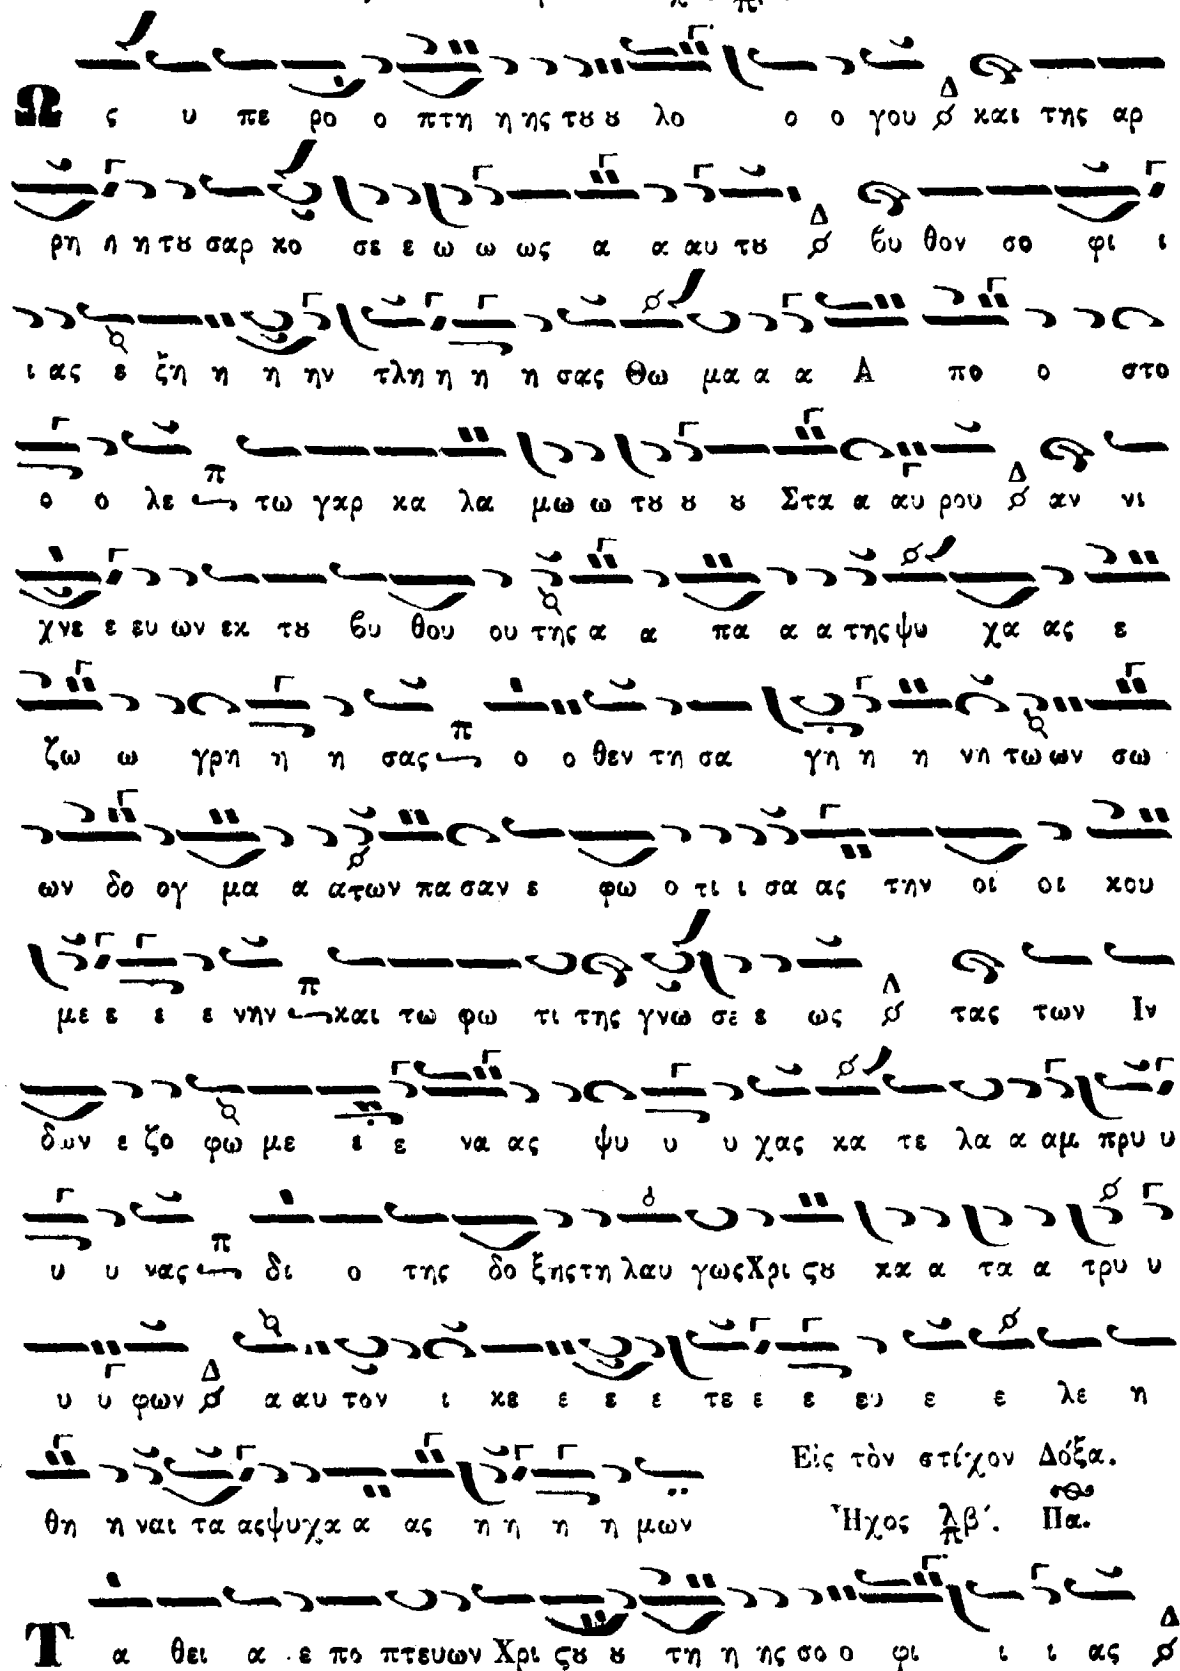 Ω ς υ πε ρο ο πτη η ης τȣ ȣ λο ο ο γου Δ και της αρ
ρη η η τȣ σαρ κο σε ε ω ω ως α α αυ τȣ Δ βυ θον σο φι ι
ι ας ε ξη η η ην τλη η η η σας Θω μα α α Α πο ο στο
ο ο λε π τω γαρ κα λα μω ω τȣ ȣ ȣ Στα α αυ ρου Δ αν νι
χνε ε ευ ων εκ τȣ βυ θου ου της α α πα α α της ψυ χα ας ε
ζω ω γρη η η σας π ο ο θεν τη σα γη η η νη τω ων σω
ων δο ογ μα α α των πα σαν ε φω ο τι ι σα ας την οι οι κου
με ε ε ε νην π και τω φω τι της γνω σε ε ως Δ τας των Ιν
δων ε ζο φω με ε ε να ας ψυ υ υ χας κα τε λα α αμ πρυ υ
υ υ νας π δι ο της δο ξης τη λαυ γως Χρι ϛȣ κα α τα α τρυ υ
υ υ φων Δ α αυ τον ι κε ε ε ε τε ε ε ευ ε ε λε η
θη η ναι τα ας ψυ χα α ας η η η η μων
Εἰς τὸν στίχον Δόξα.
Ἦχος λ π β´. Πα.
Τ α θει α ε πο πτευων Χρι ϛȣ ȣ τη η ης σο ο φι ι ι ας Δ